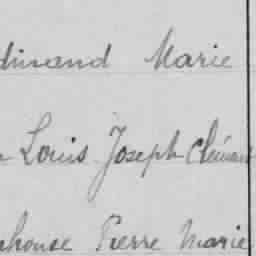 dinand Marie
n Louis Joseph Clément
phonse Pierre Marie